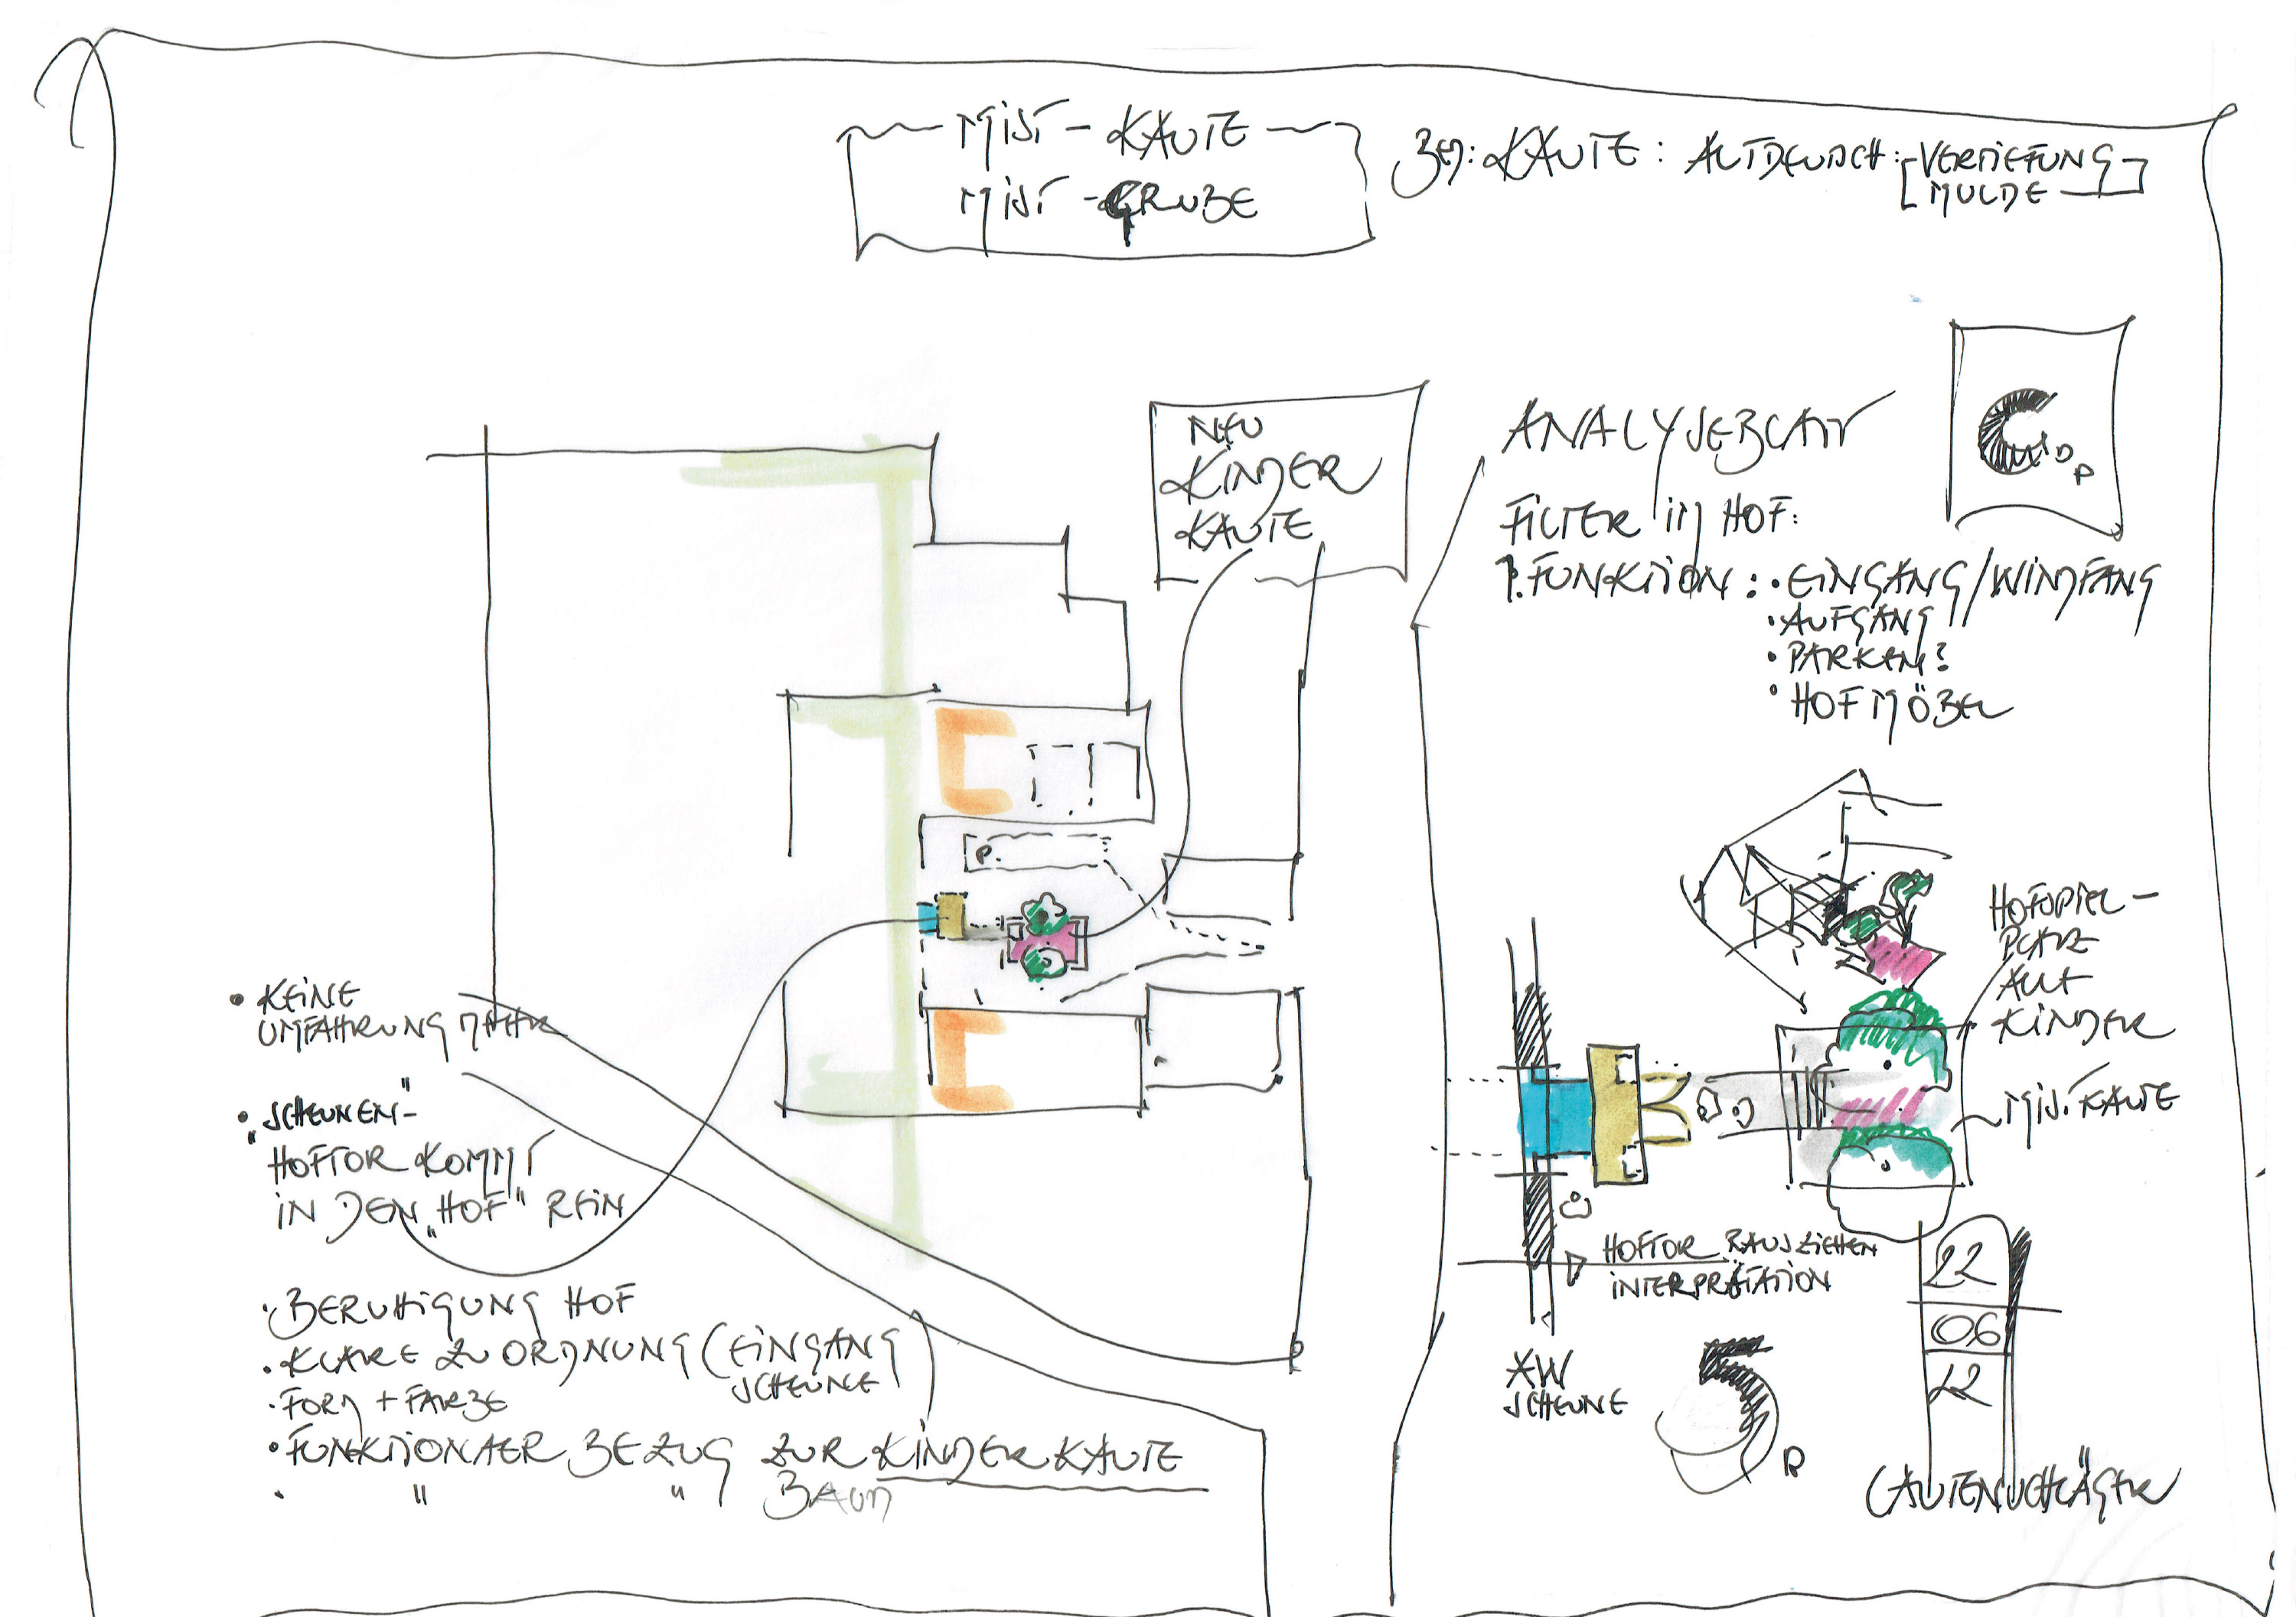 MIST - KAUTE
MIST - GRUBE
BED: KAUTE: ALTDEUTSCH: VERTIEFUNG
MULDE
NEU
KINDER
KAUTE
ANALYSEBLATT
FILTER IM HOF:
1. FUNKTION: • EINGANG/WINDFANG
• AUFGANG
• PARKEN?
• HOFMÖBEL
P.
HOFSPIEL-
PLATZ
ALLE
KINDER
MIST KAUTE
• KEINE
UMFAHRUNG MEHR
• „SCHEUNEN"-
HOFTOR KOMMT
IN DEN „HOF" REIN
• BERUHIGUNG HOF
• KLARE ZUORDNUNG (EINGANG
SCHEUNE
• FORM + FARBE
• FUNKTIONAER BEZUG ZUR KINDERKAUTE
• " " BAUM
HOFTOR RAUSZIEHEN
INTERPRÄTATION
AW
SCHEUNE
22
06
22
LAUTENSCHLÄGER